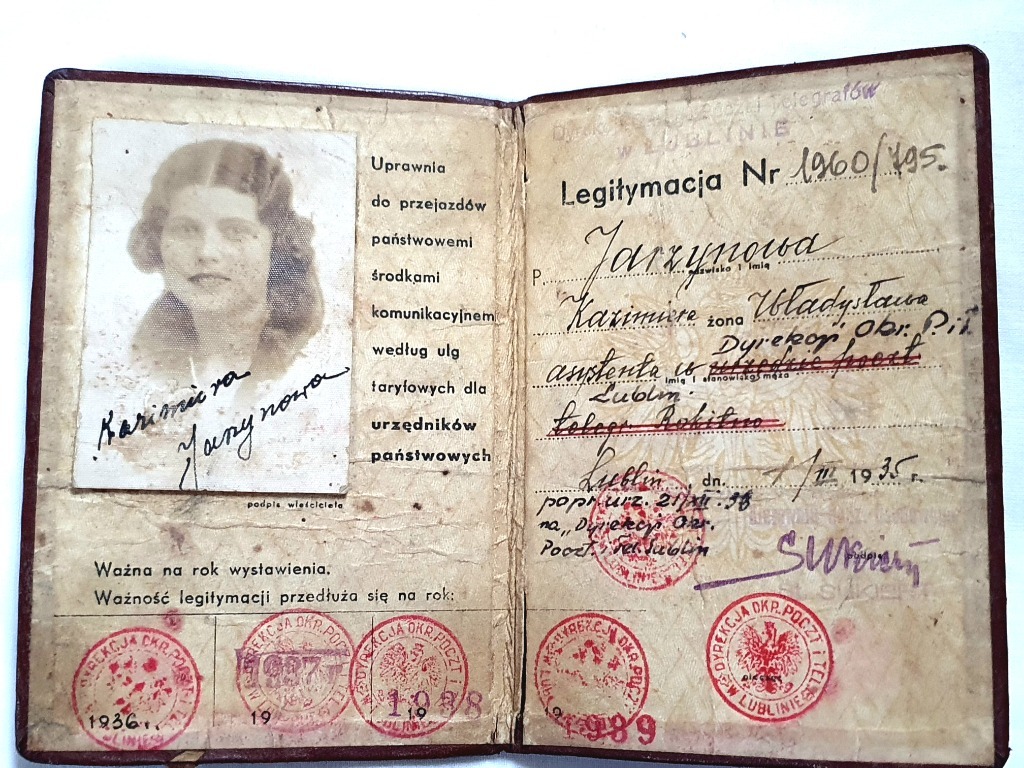 Kazimiera
Jarzynowa
podpis właściciela
Uprawnia
do przejazdów
państwowemi
środkami
komunikacyjnemi
według ulg
taryfowych dla
urzędników
państwowych
Ważna na rok wystawienia.
Ważność legitymacji przedłuża się na rok:
1936 r.
19
1937
19
1938
19
1939
Telegrafów
W LUBLINIE
Legitymacja Nr 1960/795.
P. Jarzynowa
nazwisko i imię
Kazimiera żona Władysława
Dyrekcji Okr. P. i T.
asystenta w urzędzie poczt
imię i stanowisko męża
Lublin.
telegr. Rokitno
Lublin, dn. 1/III 1935 r.
popr. urz. 21/XII.38
na „Dyrekcji Okr.
Poczt. i Tel. Lublin
podpis
DYREKCJA OKR. POCZT I TEL.
W LUBLINIE
pieczęć